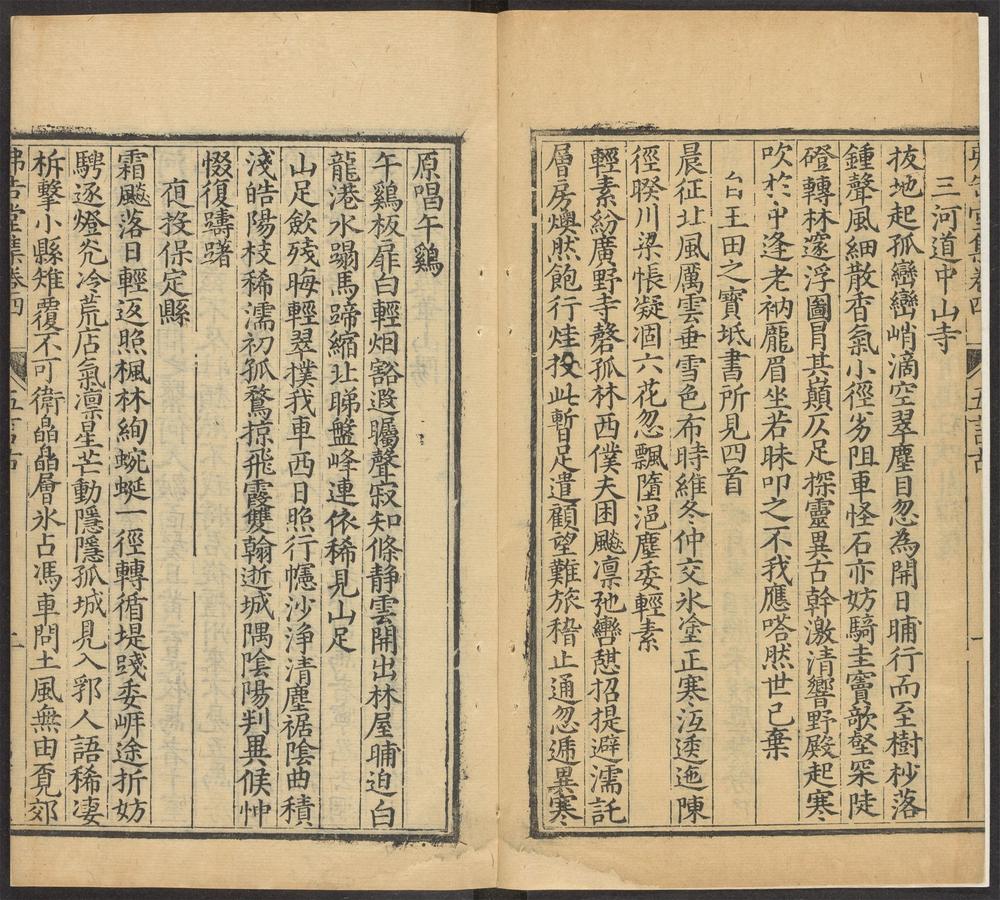 堂集卷四
三河道中山寺
拔地起孤巒巒峭滴空翠塵目忽為開日晡行而至樹杪落
鍾聲風細散香氣小徑劣阻車怪石亦妨騎圭竇欹壑罙陡
磴轉林邃浮圖冒其巔仄足探靈異古幹激清響野殿起寒
吹於中逢老衲龐眉坐若昧叩之不我應嗒然世已棄
自玉田之寶坻書所見四首
晨征北風厲雲垂雪色布時維冬仲交氷塗正寒沍逶迤陳
徑暌川梁悵凝涸六花忽飄墮浥塵委輕素
輕素紛廣野寺磬孤林西僕夫困飈凛弛轡憇招提避濡託
層房燠然飽行烓投此暫足遣顧望難旅稽止通忽遞異寒
原唱午鷄
午鷄板扉白輕烟豁遐矚聲寂知條静雲開出林屋晡迫白
龍港水蹋馬蹄縮北睇盤峰連依稀見山足
山足歛殘晦輕翠撲我車西日照行幰沙浄清塵裾陰曲積
淺皓陽枝稀濡初孤鶩掠飛霞雙翰逝城隅陰陽判異候忡
惙復躊躇
夜投保定縣
霜飈落日輕返照楓林絢蜿蜒一徑轉循堤踐委岍途折妨
騁逐燈兊冷荒店氣凛星芒動隱隱孤城見入郛人語稀凄
柝擊小縣雉覆不可衛皛皛層氷占馮車問土風無由覔郊
弗告堂集卷四
五言古
一